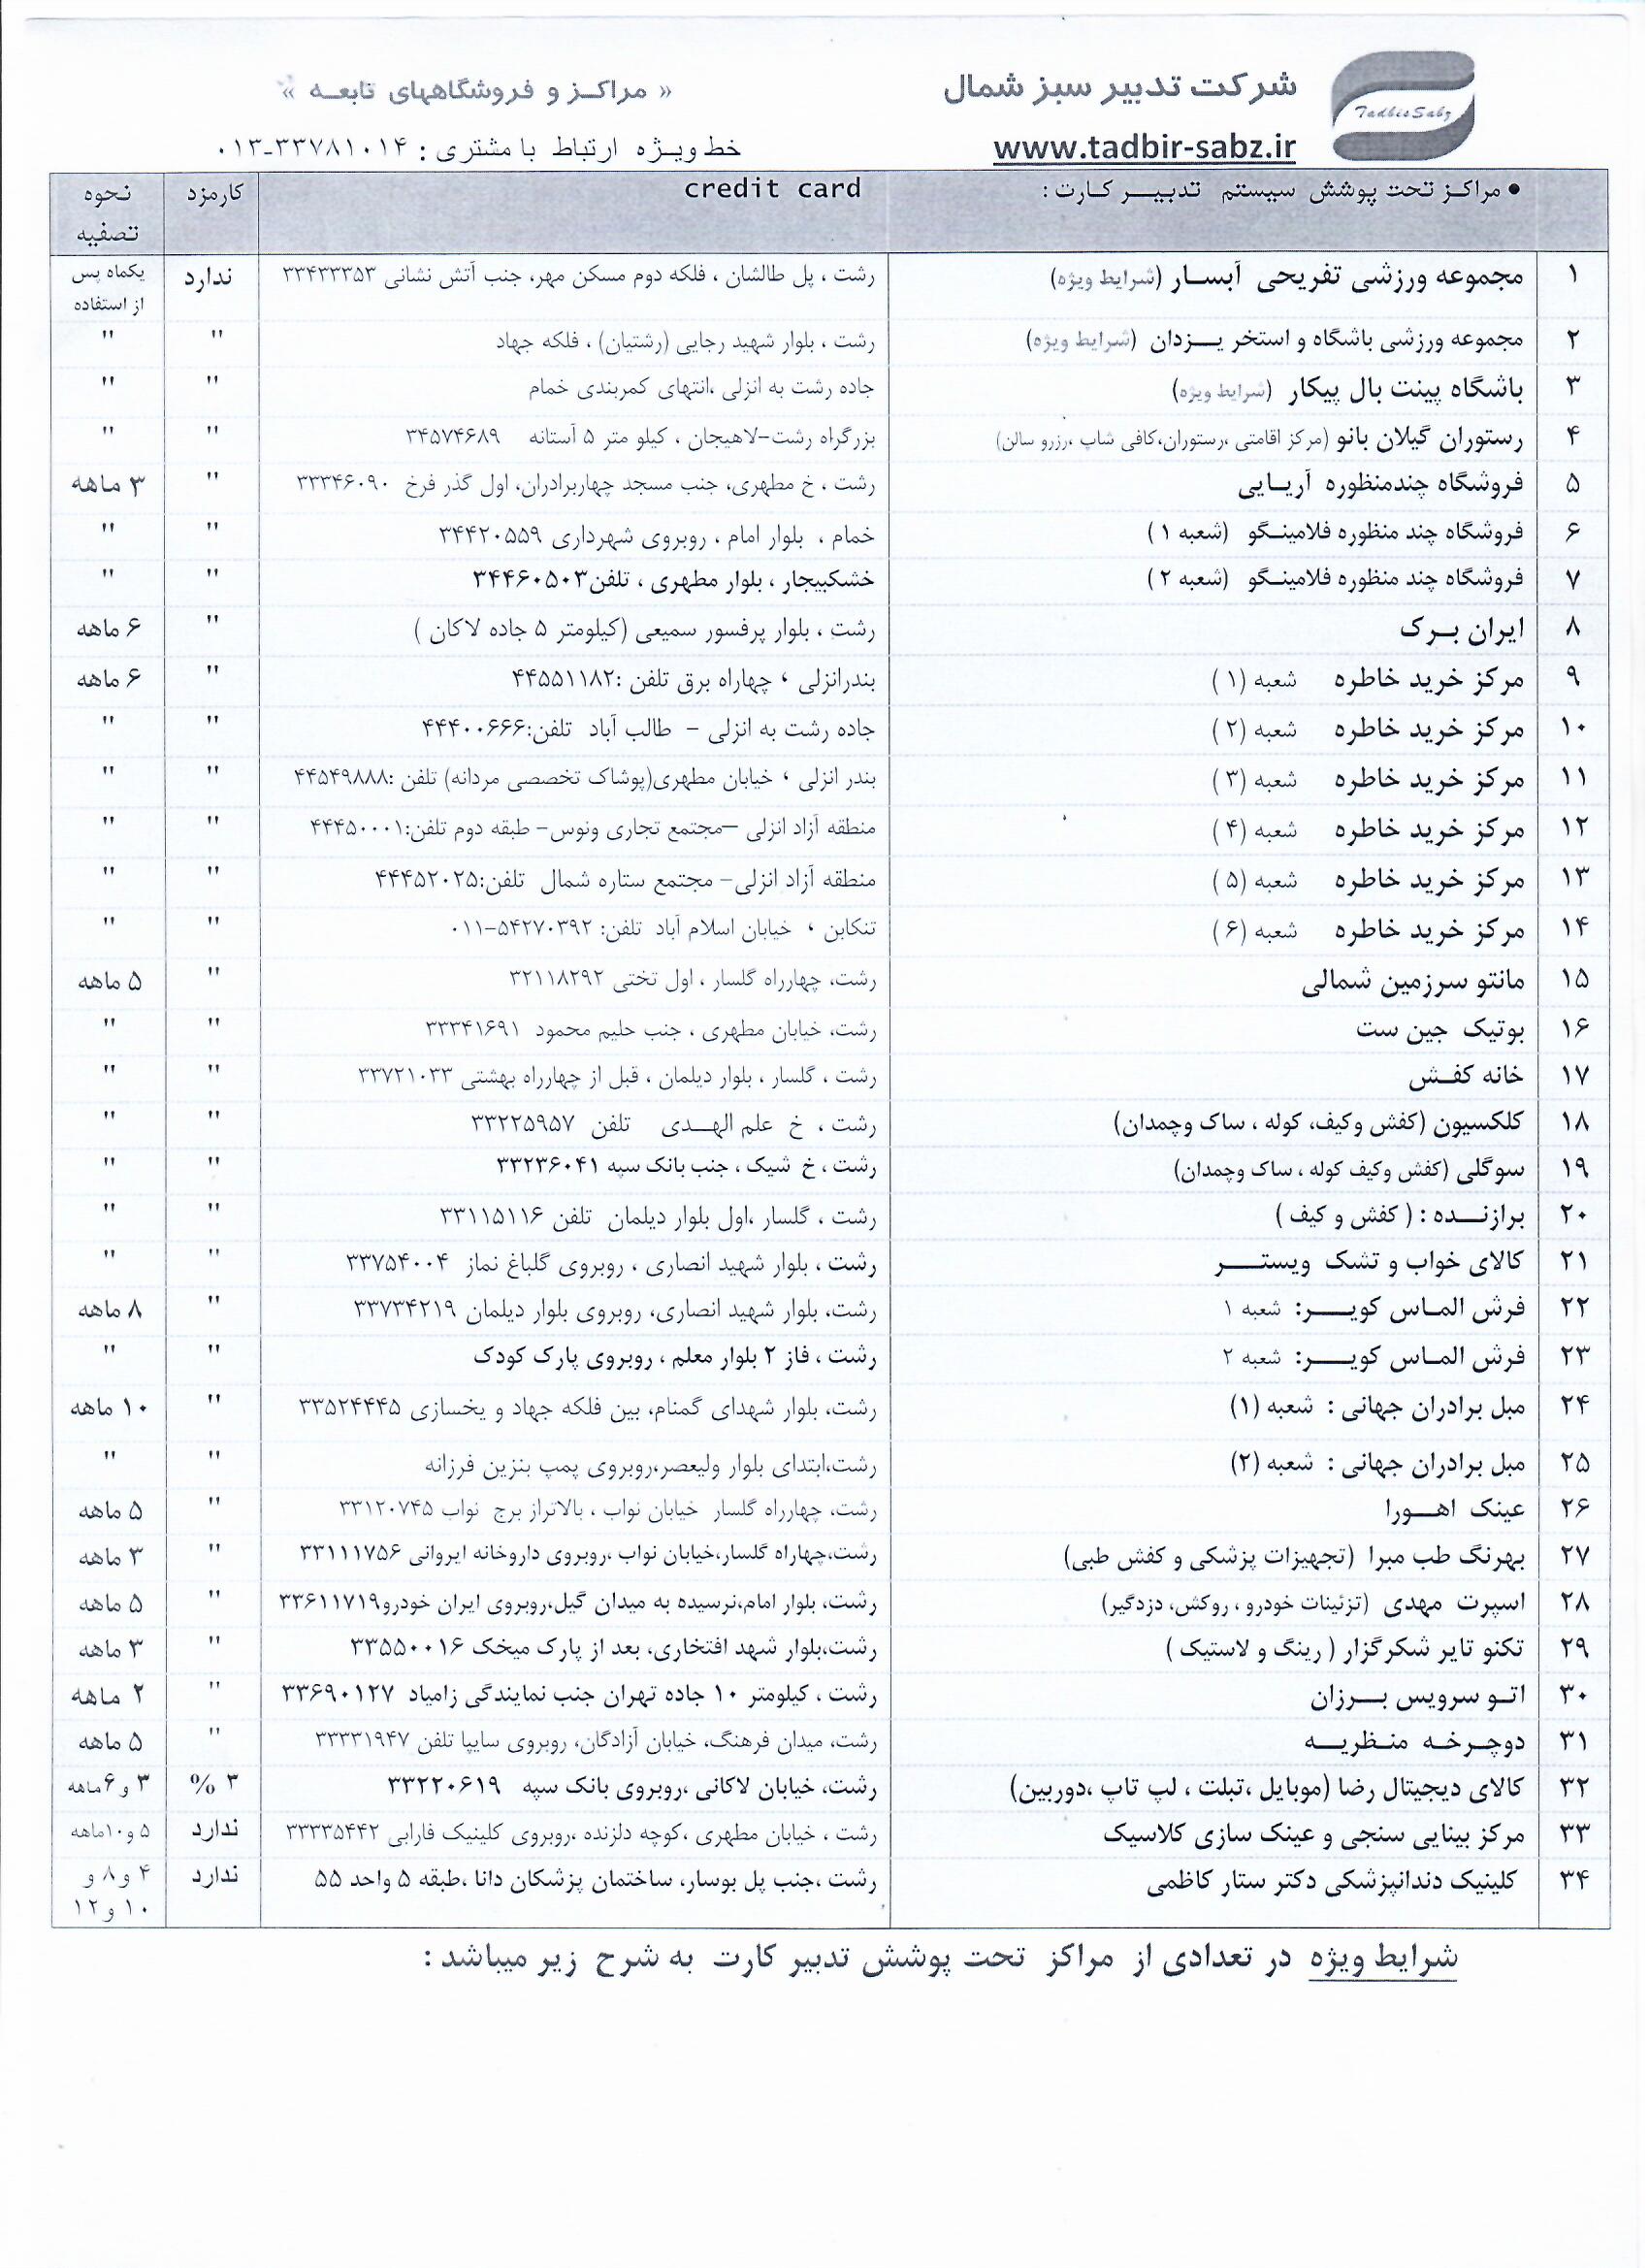 TadbirSabz
شرکت تدبیر سبز شمال
« مراکـز و فروشگاههای تابعـه »
www.tadbir-sabz.ir
خط ویـژه ارتباط با مشتری : ۰۱۳-۳۳۷۸۱۰۱۴
• مراکـز تحت پوشش سیستم تدبیـــر کـارت : credit card کارمزد نحوه تصفیه
۱ مجموعه ورزشی تفریحی آبسـار (شرایط ویژه) رشت ، پل طالشان ، فلکه دوم مسکن مهر، جنب آتش نشانی ۳۳۴۳۳۳۵۳ ندارد یکماه پس از استفاده
۲ مجموعه ورزشی باشگاه و استخر یـــزدان (شرایط ویژه) رشت ، بلوار شهید رجایی (رشتیان) ، فلکه جهاد " "
۳ باشگاه پینت بال پیکار (شرایط ویژه) جاده رشت به انزلی ،انتهای کمربندی خمام " "
۴ رستوران گیلان بانو (مرکز اقامتی ،رستوران،کافی شاپ ،رزرو سالن) بزرگراه رشت-لاهیجان ، کیلو متر ۵ آستانه ۳۴۵۷۴۶۸۹ " "
۵ فروشگاه چندمنظوره آریـایی رشت ، خ مطهری، جنب مسجد چهاربرادران، اول گذر فرخ ۳۳۳۴۶۰۹۰ " ۳ ماهه
۶ فروشگاه چند منظوره فلامینـگو (شعبه ۱ ) خمام ، بلوار امام ، روبروی شهرداری ۳۴۴۲۰۵۵۹ " "
۷ فروشگاه چند منظوره فلامینـگو (شعبه ۲ ) خشکبیجار ، بلوار مطهری ، تلفن۳۴۴۶۰۵۰۳ " "
۸ ایران بـرک رشت ، بلوار پرفسور سمیعی (کیلومتر ۵ جاده لاکان ) " ۶ ماهه
۹ مرکز خرید خاطره شعبه (۱ ) بندرانزلی ، چهاراه برق تلفن :۴۴۵۵۱۱۸۲ " ۶ ماهه
۱۰ مرکز خرید خاطره شعبه (۲ ) جاده رشت به انزلی – طالب آباد تلفن:۴۴۴۰۰۶۶۶ " "
۱۱ مرکز خرید خاطره شعبه (۳ ) بندر انزلی ، خیابان مطهری(پوشاک تخصصی مردانه) تلفن :۴۴۵۴۹۸۸۸ " "
۱۲ مرکز خرید خاطره شعبه (۴ ) منطقه آزاد انزلی –مجتمع تجاری ونوس- طبقه دوم تلفن:۴۴۴۵۰۰۰۱ " "
۱۳ مرکز خرید خاطره شعبه (۵ ) منطقه آزاد انزلی- مجتمع ستاره شمال تلفن:۴۴۴۵۲۰۲۵ " "
۱۴ مرکز خرید خاطره شعبه (۶ ) تنکابن ، خیابان اسلام آباد تلفن: ۰۱۱-۵۴۲۷۰۳۹۲ " "
۱۵ مانتو سرزمین شمالی رشت، چهارراه گلسار ، اول تختی ۳۲۱۱۸۲۹۲ " ۵ ماهه
۱۶ بوتیک جین ست رشت، خیابان مطهری ، جنب حلیم محمود ۳۳۳۴۱۶۹۱ " "
۱۷ خانه کفـش رشت ، گلسار ، بلوار دیلمان ، قبل از چهارراه بهشتی ۳۳۷۲۱۰۳۳ " "
۱۸ کلکسیون (کفش وکیف، کوله ، ساک وچمدان) رشت ، خ علم الهــدی تلفن ۳۳۲۲۵۹۵۷ " "
۱۹ سوگلی (کفش وکیف کوله ، ساک وچمدان) رشت ، خ شیک ، جنب بانک سپه ۳۳۲۳۶۰۴۱ " "
۲۰ برازنـــده : ( کفش و کیف ) رشت ، گلسار ،اول بلوار دیلمان تلفن ۳۳۱۱۵۱۱۶ " "
۲۱ کالای خواب و تشک ویستـــــر رشت ، بلوار شهید انصاری ، روبروی گلباغ نماز ۳۳۷۵۴۰۰۴ " "
۲۲ فرش المـاس کویـــــر: شعبه ۱ رشت، بلوار شهید انصاری، روبروی بلوار دیلمان ۳۳۷۳۴۲۱۹ " ۸ ماهه
۲۳ فرش المـاس کویـــــر: شعبه ۲ رشت ، فاز ۲ بلوار معلم ، روبروی پارک کودک " "
۲۴ مبل برادران جهانی : شعبه (۱) رشت، بلوار شهدای گمنام، بین فلکه جهاد و یخسازی ۳۳۵۲۴۴۴۵ " ۱۰ ماهه
۲۵ مبل برادران جهانی : شعبه (۲) رشت،ابتدای بلوار ولیعصر،روبروی پمپ بنزین فرزانه " "
۲۶ عینک اهـــورا رشت، چهارراه گلسار خیابان نواب ، بالاتراز برج نواب ۳۳۱۲۰۷۴۵ " ۵ ماهه
۲۷ بهرنگ طب مبرا (تجهیزات پزشکی و کفش طبی) رشت،چهاراه گلسار،خیابان نواب ،روبروی داروخانه ایروانی ۳۳۱۱۱۷۵۶ " ۳ ماهه
۲۸ اسپرت مهدی (تزئینات خودرو ، روکش، دزدگیر) رشت، بلوار امام،نرسیده به میدان گیل،روبروی ایران خودرو۳۳۶۱۱۷۱۹ " ۵ ماهه
۲۹ تکنو تایر شکرگزار ( رینگ و لاستیک ) رشت،بلوار شهد افتخاری، بعد از پارک میخک ۳۳۵۵۰۰۱۶ " ۳ ماهه
۳۰ اتـو سرویس بـــرزان رشت ، کیلومتر ۱۰ جاده تهران جنب نمایندگی زامیاد ۳۳۶۹۰۱۲۷ " ۲ ماهه
۳۱ دوچـرخـه منـظریــه رشت، میدان فرهنگ، خیابان آزادگان، روبروی سایپا تلفن ۳۳۳۳۱۹۴۷ " ۵ ماهه
۳۲ کالای دیجیتال رضا (موبایل ،تبلت ، لپ تاپ ،دوربین) رشت، خیابان لاکانی ،روبروی بانک سپه ۳۳۲۲۰۶۱۹ ۳ % ۳ و ۶ماهه
۳۳ مرکز بینایی سنجی و عینک سازی کلاسیک رشت ، خیابان مطهری ،کوچه دلزنده ،روبروی کلینیک فارابی ۳۳۳۳۵۴۴۲ ندارد ۵ و۱۰ماهه
۳۴ کلینیک دندانپزشکی دکتر ستار کاظمی رشت ،جنب پل بوسار، ساختمان پزشکان دانا ،طبقه ۵ واحد ۵۵ ندارد ۴ و ۸ و ۱۰ و ۱۲
شرایط ویژه در تعدادی از مراکز تحت پوشش تدبیر کارت به شرح زیر میباشد :